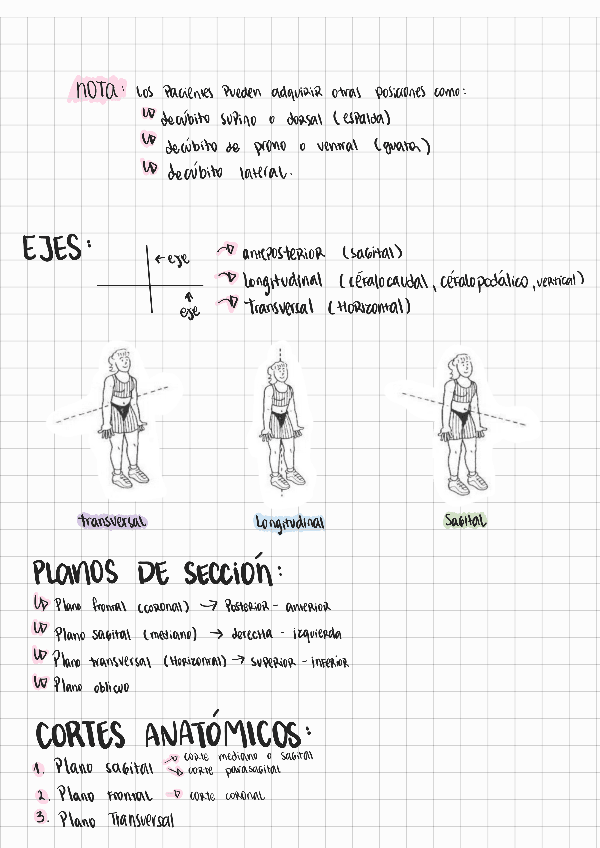 NOTA: Los Pacientes Pueden adquirir otras posiciones como:
decúbito supino o dorsal (espalda)
decúbito de prono o ventral (guata)
decúbito lateral.
EJES:
← eje
↑
eje
anteposterior (sagital)
longitudinal (céfalocaudal, céfalopodálico, vertical)
Transversal (Horizontal)
transversal
Longitudinal
Sagital
PLANOS DE SECCIÓN:
Plano frontal (coronal) → Posterior - anterior
Plano sagital (mediano) → derecha - izquierda
Plano transversal (Horizontal) → superior - inferior
Plano oblicuo
CORTES ANATÓMICOS:
1. Plano sagital → corte mediano o sagital
→ corte parasagital
2. Plano Frontal → corte coronal
3. Plano Transversal